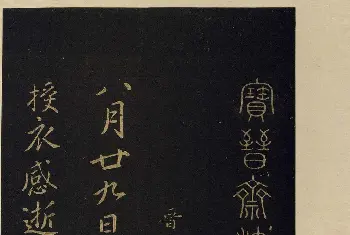 寶晉齋
晉
八月廿九日
授衣感逝